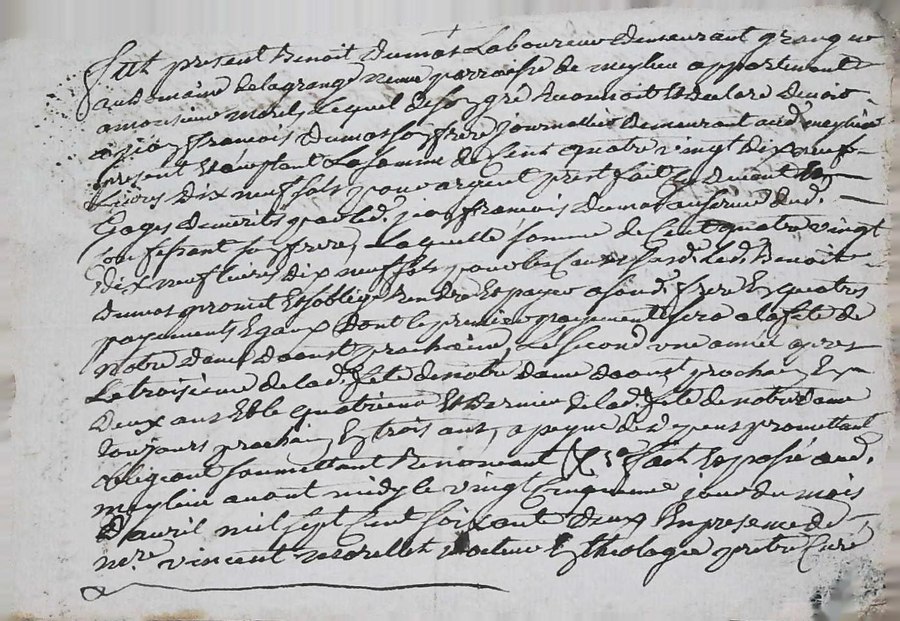 Fut present Benoit Dumas Laboureur Demeurant granger
au Domaine delagrange neuve parroisse de meylieu appartenant
a monsieur morel, Lequel de son gré Reconnoit Et declare devoir
a jean francois Dumas son frere journallier demeurant aud. meylieu
present Et acceptant La somme de Cent quatre vingt dix neuf
Livres Dix neuf sols, pour argent prest fait Et Durant
Gages Demerités par led. jean francois Dumas au service dud.
son frere, Laquelle somme de Cent quatre vingt
dix neuf livres dix neuf sols, pour les Causes Led. Benoit
Dumas promet Et soblige Rendre Et payer a sond. frere En quatre
payements Egaux Dont le premier payement sera a la fete de
notre dame Daoust prochaine, Le Second une année apres
Le troisieme de lad. fete de notre dame daoust prochain En
Deux ans Et le quatrieme Et Dernier de lad. fete de notre dame
toujours prochain En trois ans, a peyne de depens promettant
obligeant soumettant Renoncant fait Et passé aud.
meylieu avant midy le vingt Cinquieme jour du mois
D'avril mil sept Cent soixante deux En presence de
me. vincent morellet Docteur En theologie pretre Curé